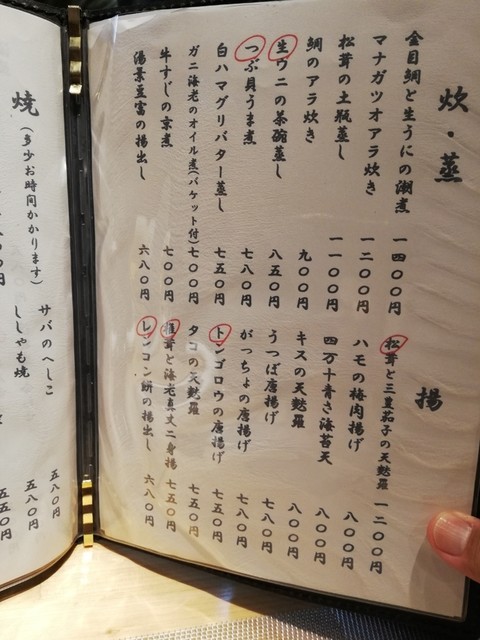 炊・蒸
金目鯛と生うにの潮煮 一四〇〇円
マナガツオアラ炊き 一二〇〇円
松茸の土瓶蒸し 一一〇〇円
鯛のアラ炊き 九〇〇円
生ウニの茶碗蒸し 八五〇円
つぶ貝うま煮 七八〇円
白ハマグリバター蒸し 七五〇円
ガニ海老のオイル煮(バケット付) 七〇〇円
牛すじの京煮 七〇〇円
湯葉豆富の揚出し 六八〇円
揚
松茸と三豊茄子の天麩羅 一二〇〇円
ハモの梅肉揚げ 八〇〇円
四万十青さ海苔天 八〇〇円
キスの天麩羅 八〇〇円
うつぼ唐揚げ 七八〇円
がっちょの唐揚げ 七八〇円
トンゴロウの唐揚げ 七五〇円
タコの天麩羅 七五〇円
椎茸と海老真丈二身揚 七五〇円
レンコン餅の揚出し 六八〇円
焼
(多少お時間かかります)
サバのへしこ 五八〇円
ししゃも焼 五八〇円
五五〇円